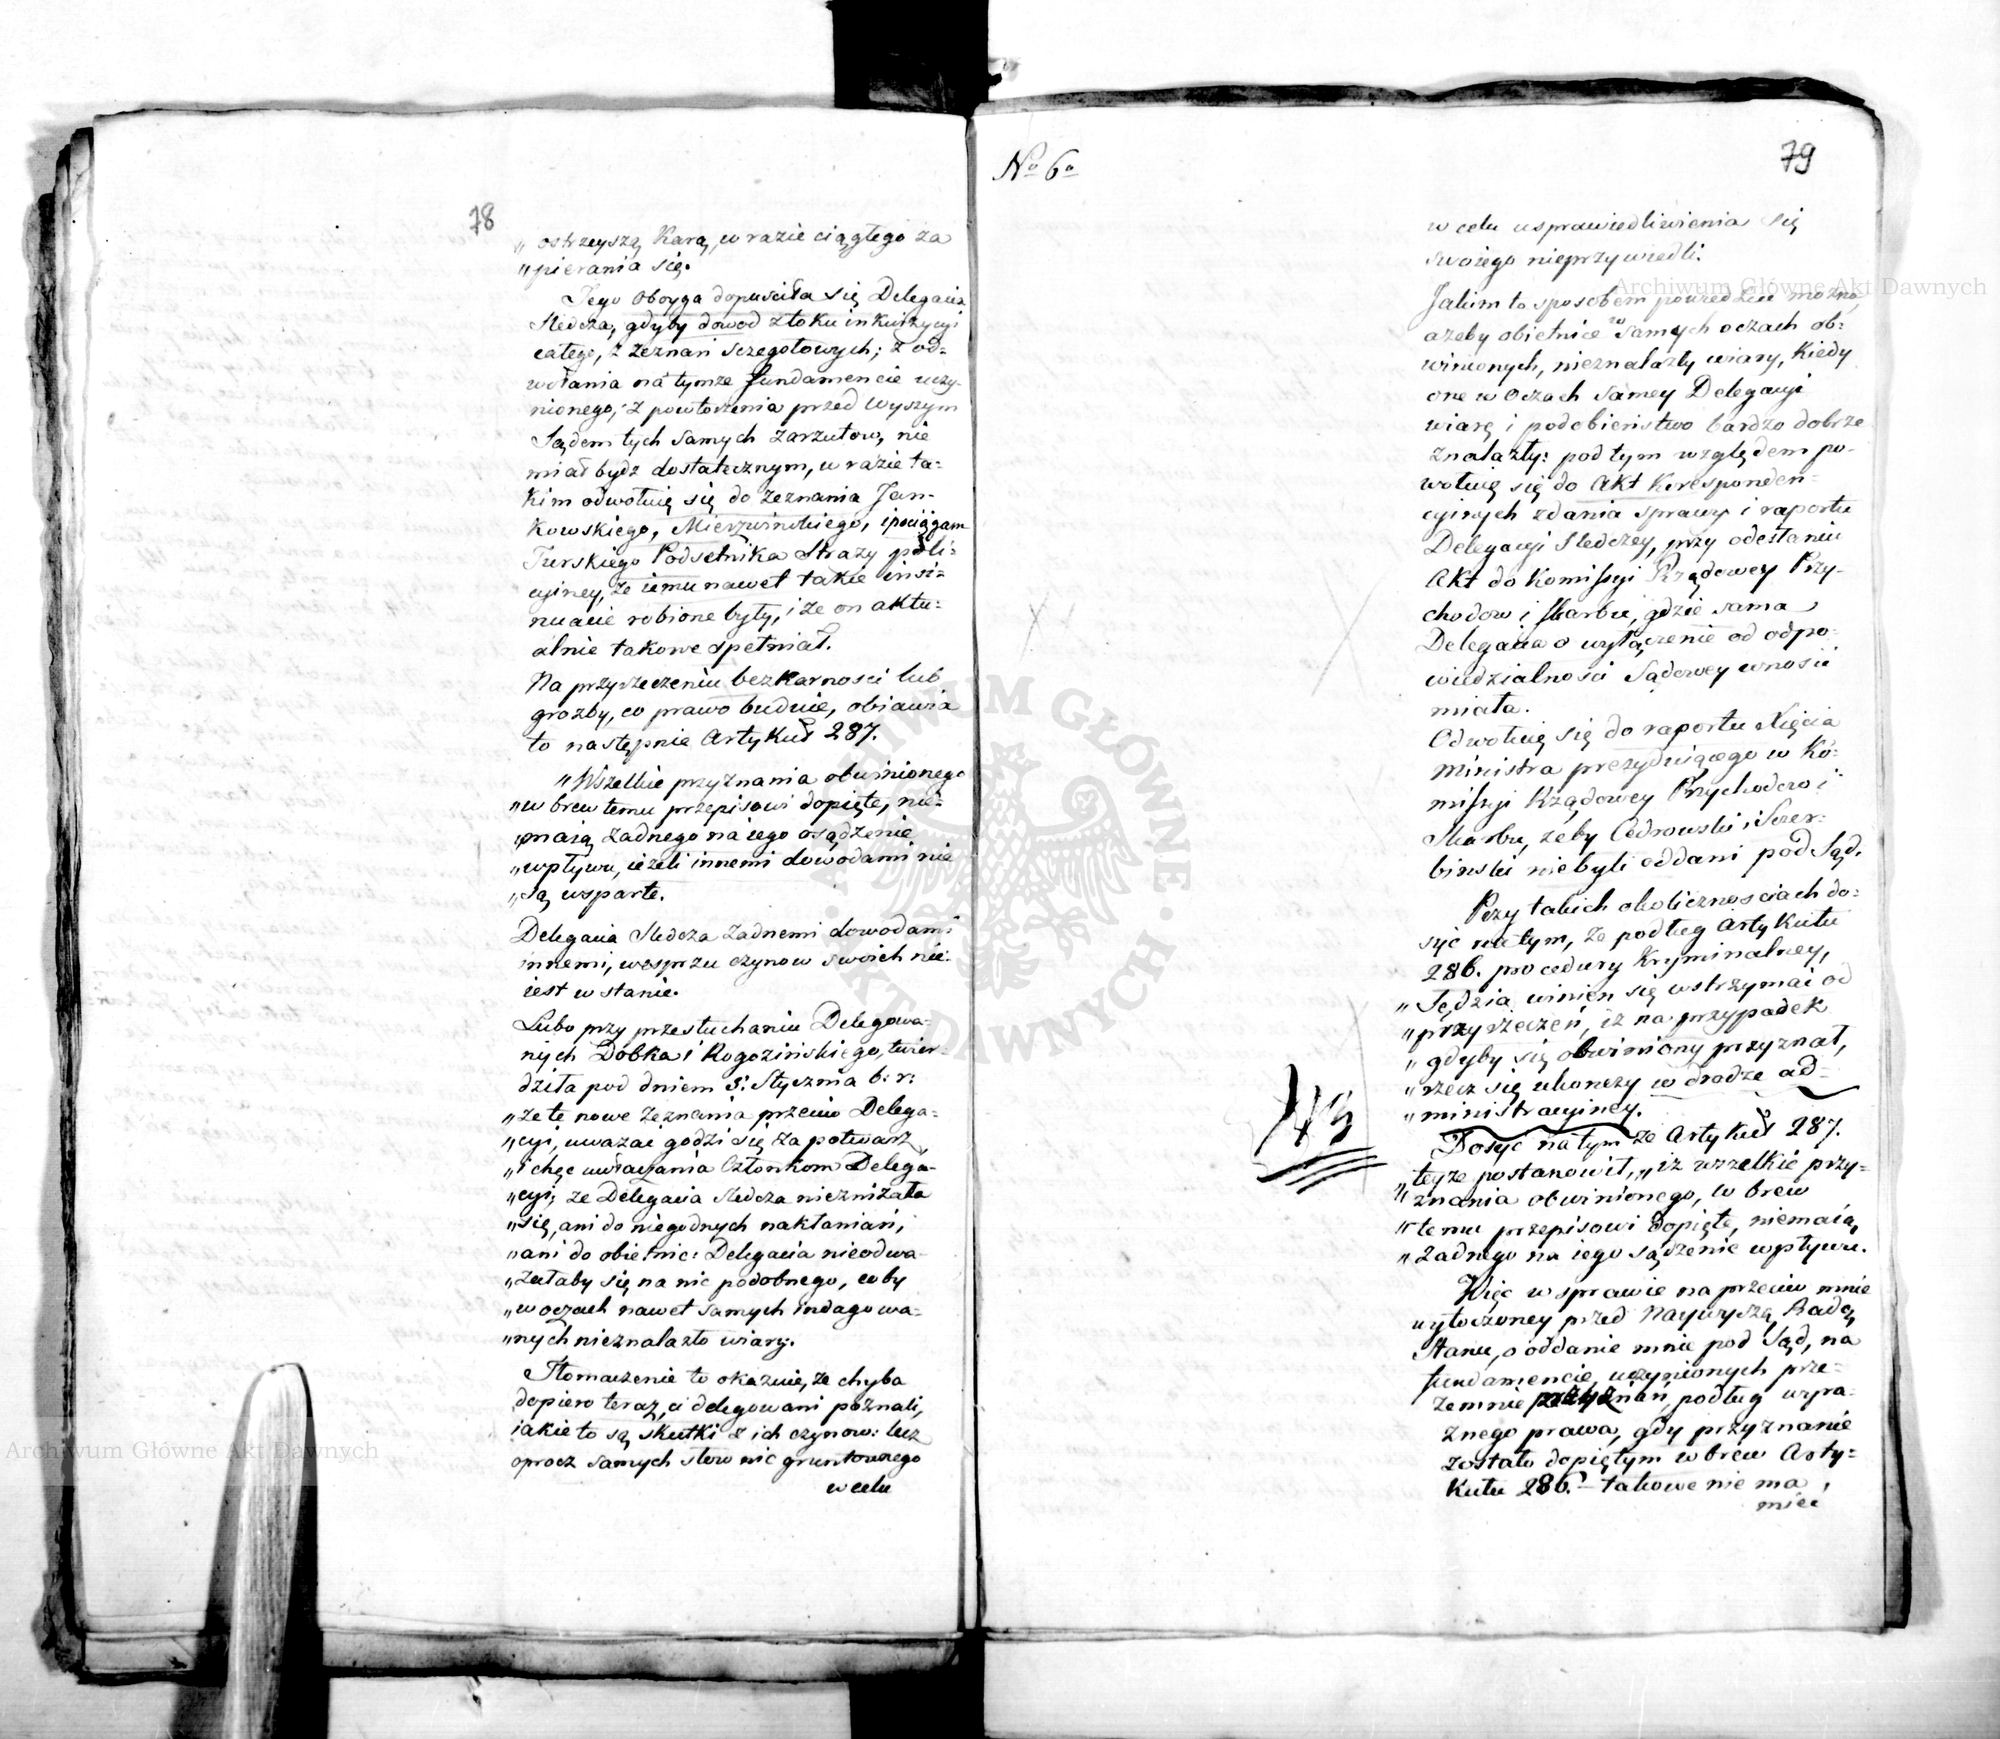 78
„ ostrzeyszą Karą, w razie ciągłego za
„ pierania się.
Tego oboyga dopusciła się Delegacia
Sledcza, gdyby dowod z toku inkwizycyi
całego, z zeznań sczegołowych; z od=
wołania na tymże fundamencie uczy-
nionego; z powtorzenia przed Wyszym
Sądem tych samych zarzutow, nie
miał bydz dostatecznym, w razie ta=
kim odwołuię się do zeznania Jan-
kowskiego, Mierzwinskiego, i pociągam
Turskiego Podsetnika Strazy poli=
cyiney, że iemu nawet takie insi=
nuacie robione były, i że on aktu=
alnie takowe spełniał.
Na przyrzeczeniu bezkarnosci lub
grozby, co prawo buduie, obiawia
to następnie Artykuł 287.
„ Wszelkie przyznania obwinionego
„ w brew temu przepisowi dopięte, nie=
„ maią zadnego na iego osądzenie
„ wpływu, ieżeli innemi dowodami nie
„ są wsparte.
Delegacia Sledcza zadnemi dowodami
innemi, wesprzu czynow swoich nie
iest w stanie.
Lubo przy przesłuchaniu Delegowa=
nych Dobka i Rogozińskiego, twier-
dziła pod dniem 3: Stycznia b: r:
„ że te nowe zeznania przeciw Delega=
„ cyi, uważać godzi się za potwarz
„ i chęc uwłaczania Członkom Delega=
„ cyi; że Delegacia Sledcza nieznizała
„ się, ani do niegodnych nakłaniań,
„ ani do obietnic: Delegacia nieodwa-
„ żałaby się na nic podobnego, coby
„ w oczach nawet samych indagowa-
„ nych nieznalazło wiary.
Tłomaczenie to okazuie, że chyba
dopiero teraz, ci delegowani poznali,
iakie to są skutki z ich czynow: lecz
oprocz samych słow nic gruntownego
w celu
No 6o
79
w celu usprawiedliwienia się
swoiego nieprzywiedli.
Jakim to sposobem powiedziec można
ażeby obietnice w samych oczach ob=
winionych, nieznalazły wiary, kiedy
one w oczach samey Delegacyi
wiarę i podobieństwo bardzo dobrze
znalazły: pod tym względem po-
wołuię się do Akt korresponden-
cyinych zdania sprawy i raportu
Delegacyi Sledczey, przy odesłaniu
Akt do Komissyi Rządowey Przy-
chodow i Skarbu, gdzie sama
Delegacia o wyłączenie od odpo=
wiedzialności Sądowey wnosić
miała.
Odwołuię się do raportu Xięcia
Ministra prezyduiącego w Ko=
missyi Rządowey Przychodow i
Skarbu, żeby Cedrowski i Szer=
binski niebyli oddani pod Sąd.
Przy takich okolicznosciach do=
syc na tym, że podług Artykułu
286. procedury Kryminalney,
„ Sędzia winien się wstrzymać od
„ przyrzeczeń, iż na przypadek
„ gdyby się obwiniony przyznał,
„ rzecz się ukonczy w drodze ad=
„ ministracyiney.
Dosyć na tym że Artykuł 287.
teyże postanowił, „ iż wszelkie przy=
„ znania obwinionego, w brew
„ temu przepisowi dopięte, niemaią
„ żadnego na iego sądzenie wpływu.
Więc w sprawie na przeciw mnie
wytoczoney przed Naywyszą Radą
Stanu, o oddanie mnie pod Sąd, na
fundamencie, uczynionych prze-
zemnie przyznań, podług wyra-
znego prawa, gdy przyznanie
zostało dopiętym w brew Arty=
kułu 286. – takowe nie ma
mieć
Archiwum Główne Akt Dawnych
Archiwum Główne Akt Dawnych
ARCHIWUM GŁÓWNE · AKT DAWNYCH ·